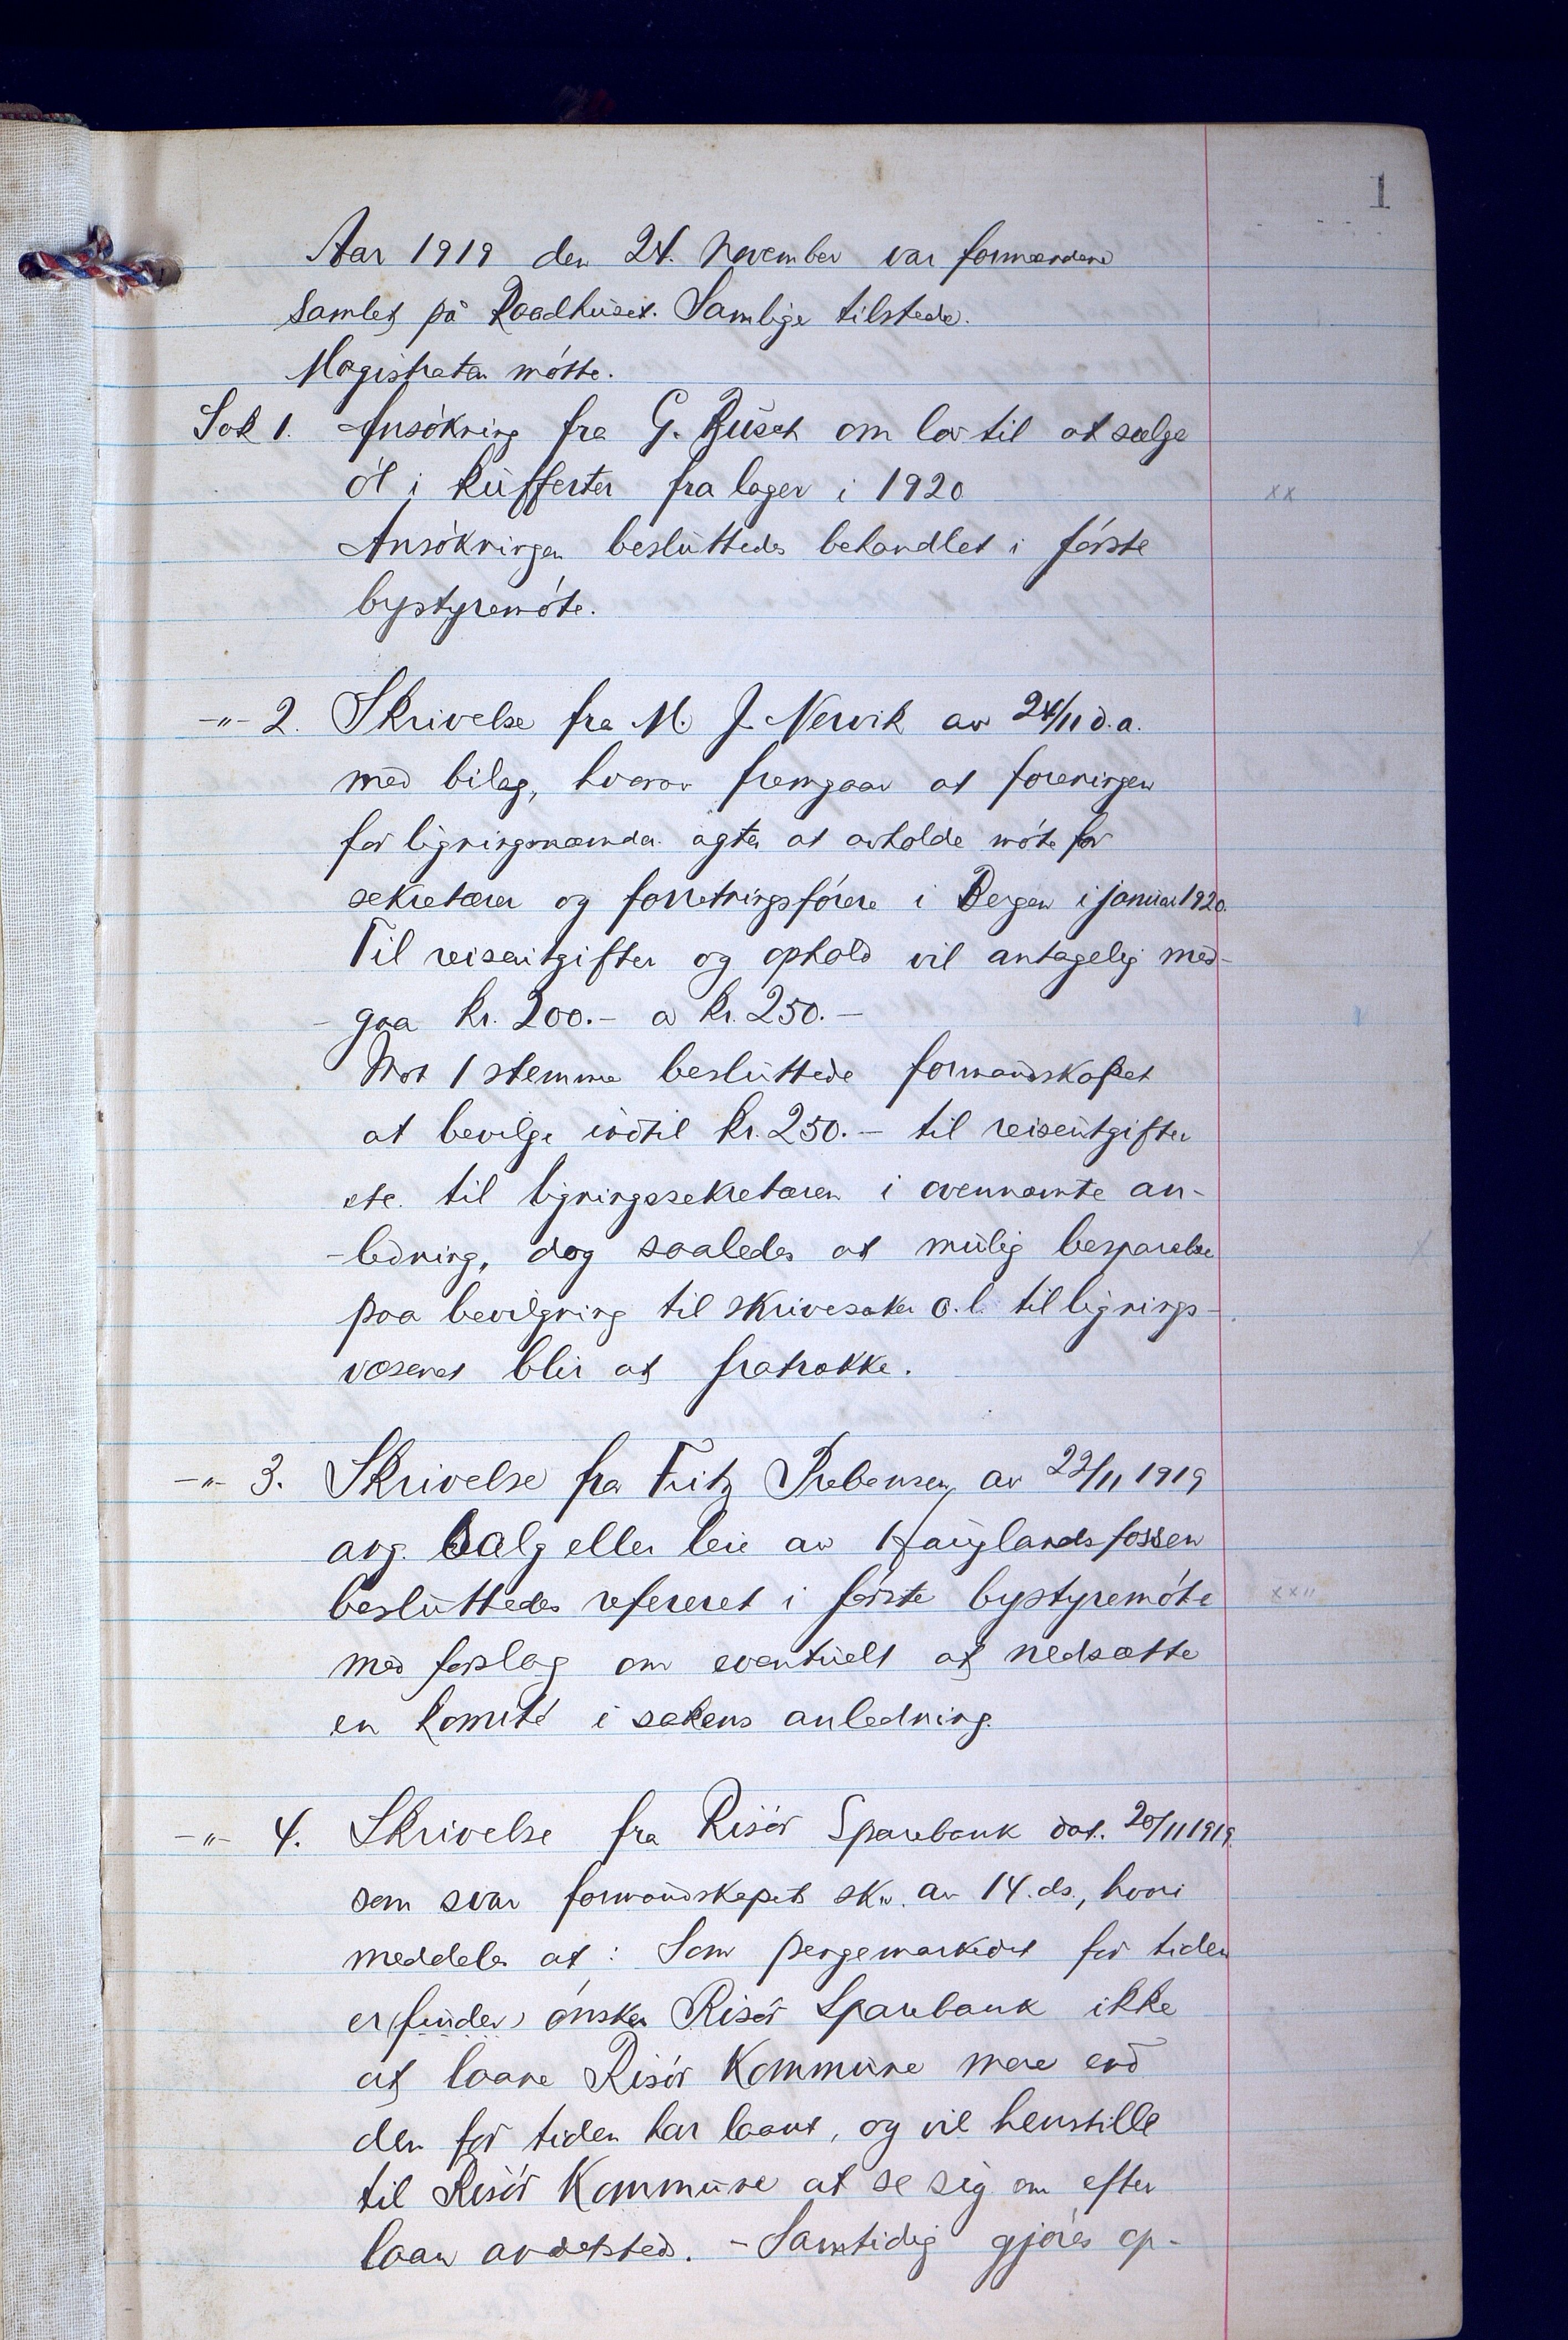 1
Aar 1919 den 24. November var formændene
samlet på Raadhuset. Samlige tilstede.
Magistraten mötte.
Sak 1. Ansökning fra G. Büsch om lov til at sælge
öl i kufferter fra lager i 1920
xx
Ansökningen besluttedes behandlet i förste
bystyremöte.
-"- 2. Skrivelse fra M. J. Nervik av 24/11 d.a.
med bilag, hvorav fremgaar at foreningen
for ligningsnæmnder agter at avholde möte for
sekretærer og forretningsförere i Bergen i januar 1920.
Til reiseutgifter og ophold vil antagelig med-
- gaa kr. 200.- a kr. 250.-
Mot 1 stemme besluttede formandskapet
at bevilge indtil kr. 250.- til reiseutgifter
etc. til ligningssekretæren i ovennævnte an-
- ledning, dog saaledes at mulig besparelse
paa bevilgning til skrivesaker o.l. til lignings-
væsenet blir at fratrække.
-"- 3. Skrivelse fra Fritz Prebensen av 22/11 1919
ang. Salg eller leie av Hauglandsfossen
besluttedes refereret i förste bystyremöte
xx"
med forslag om eventuelt at nedsætte
en komité i sakens anledning.
-"- 4. Skrivelse fra Risör Sparebank dat. 20/11 1919.
som svar formandskapets skr. av 14. ds., hvori
meddeles at: Som pengemarkedet for tiden
er (finder) önsker Risör Sparebank ikke
at laane Risör Kommune mere end
den for tiden har laant, og vil henstille
til Risör Kommune at se sig om efter
laan andetsteds. - Samtidig gjöres op-